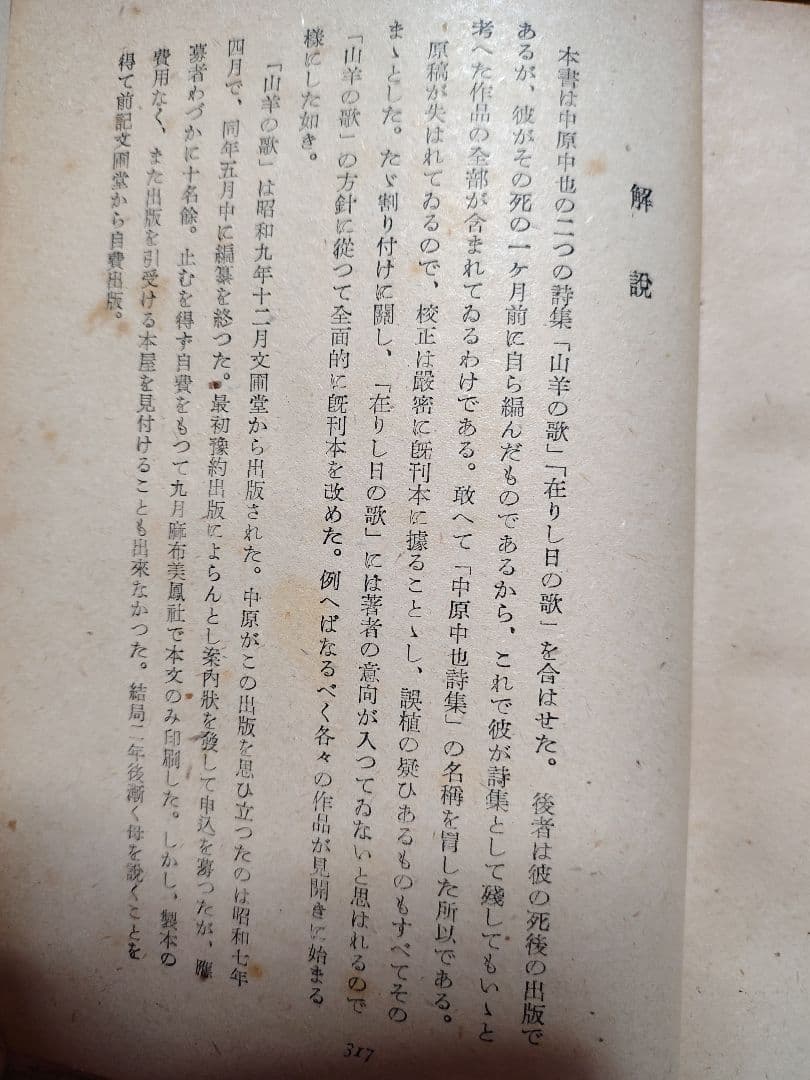 解說
本書は中原中也の二つの詩集「山羊の歌」「在りし日の歌」を合はせた。後者は彼の死後の出版で
あるが、彼がその死の一ヶ月前に自ら編んだものであるから、これで彼が詩集として残してもいゝと
考へた作品の全部が含まれてゐるわけである。敢へて「中原中也詩集」の名稱を冐した所以である。
原稿が失はれてゐるので、校正は嚴密に旣刊本に據ることゝし、誤植の疑ひあるものもすべてその
まゝとした。たゞ割り付けに關し、「在りし日の歌」には著者の意向が入つてゐないと思はれるので
「山羊の歌」の方針に從つて全面的に旣刊本を改めた。例へばなるべく各々の作品が見開きに始まる
樣にした如き。
「山羊の歌」は昭和九年十二月文圃堂から出版された。中原がこの出版を思ひ立つたのは昭和七年
四月で、同年五月中に編纂を終つた。最初豫約出版によらんとし案內狀を發して申込を募つたが、應
募者わづかに十名餘。止むを得ず自費をもつて九月麻布美鳳社で本文のみ印刷した。しかし、製本の
費用なく、また出版を引受ける本屋を見付けることも出來なかつた。結局二年後漸く母を說くことを
得て前記文圃堂から自費出版。
317